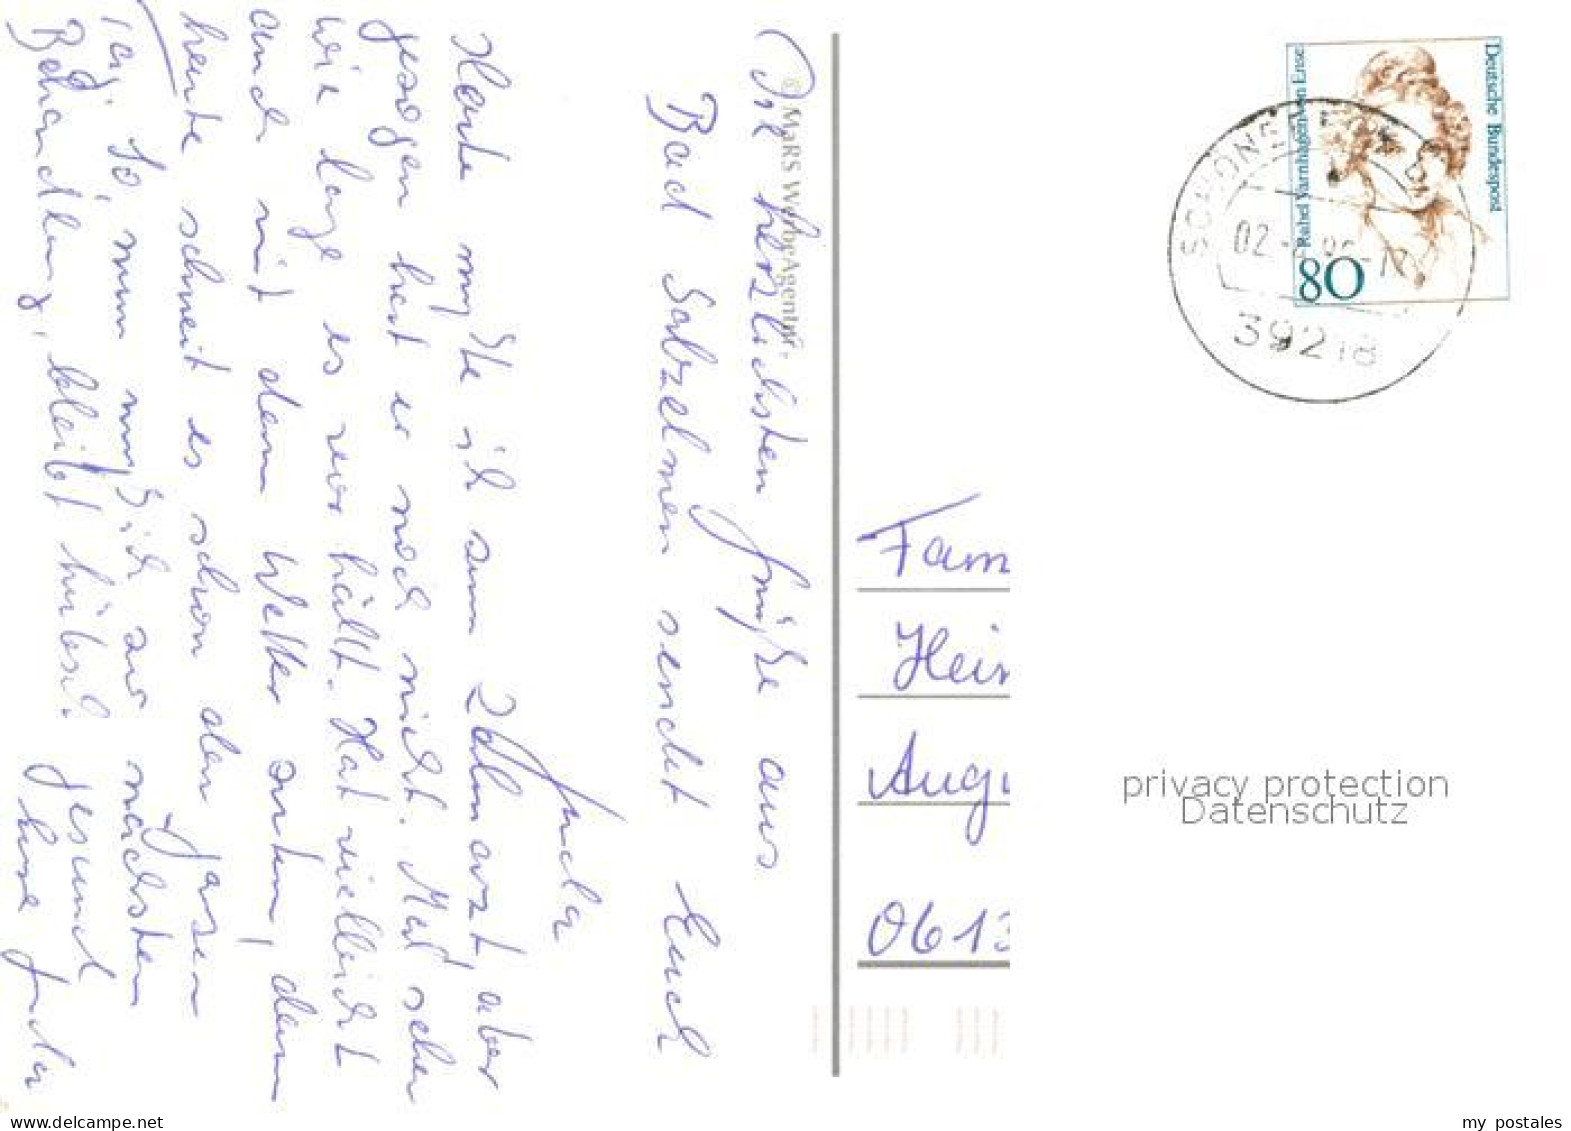 Die herzlichsten Grüße aus
Bad Salzelmen sendet Euch
Heute mußte ich zum Zahnarzt, aber
gezogen hat er noch nicht. Mal sehen
wie lange es vorhält. Hat vielleicht
auch mit dem Wetter zutun, denn
heute schneit es schon den ganzen
Tag. So, nun muß ich zur nächsten
Behandlung, bleibt hübsch gesund
© MaRS WerbeAgentur.
Deutsche Bundespost
Rahel Varnhagen von Ense
80
SCHÖNEBECK
02
39218
Fam
Hein
Augu
0613
privacy protection
Datenschutz
my postales